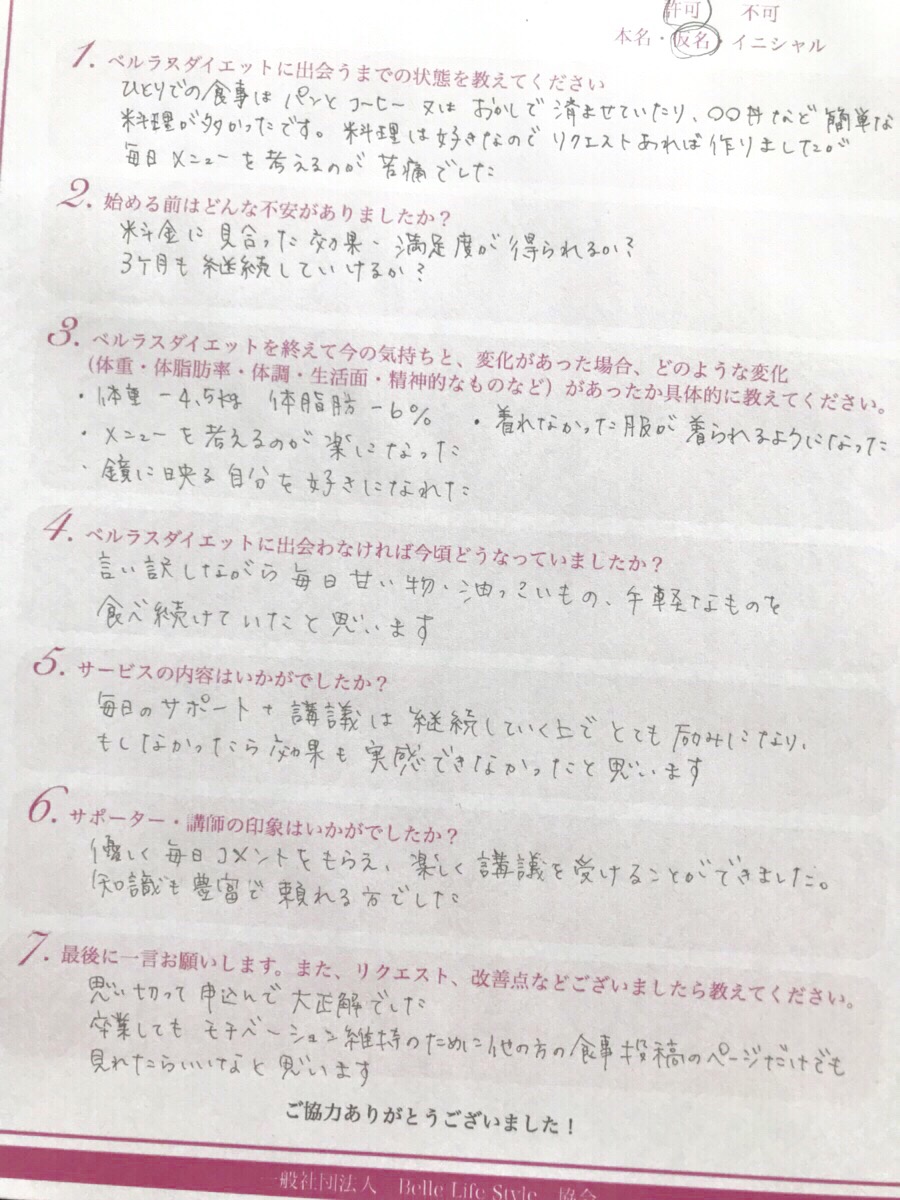 許可 不可
本名・仮名・イニシャル
1. ベルラスダイエットに出会うまでの状態を教えてください
ひとりでの食事は パンとコーヒー 又は おかしで 済ませていたり、〇〇丼など 簡単な
料理が多かったです。料理は好きなので リクエストあれば 作りましたが
毎日メニューを考えるのが 苦痛でした
2. 始める前はどんな不安がありましたか？
料金に見合った効果・満足度が得られるか？
3ヶ月も継続していけるか？
3. ベルラスダイエットを終えて今の気持ちと、変化があった場合、どのような変化
(体重・体脂肪率・体調・生活面・精神的なものなど）があったか具体的に教えてください。
・体重 -4.5kg 体脂肪 -6% ・着れなかった服が着られるようになった
・メニューを考えるのが楽になった
・鏡に映る自分を好きになれた
4. ベルラスダイエットに出会わなければ今頃どうなっていましたか？
言い訳しながら 毎日甘い物、油っこいもの、手軽なものを
食べ続けていたと思います
5. サービスの内容はいかがでしたか？
毎日のサポート+講義は 継続していく上で とても励みになり、
もしなかったら効果も実感できなかったと思います
6. サポーター・講師の印象はいかがでしたか？
優しく毎日コメントをもらえ、楽しく講議を受けることができました。
知識も豊富で頼れる方でした
7. 最後に一言お願いします。また、リクエスト、改善点などございましたら教えてください。
思い切って申込んで大正解でした
卒業しても モチベーション維持のために他の方の食事投稿のページだけでも
見れたらいいなと思います
ご協力ありがとうございました！
一般社団法人 Belle Life Style 協会